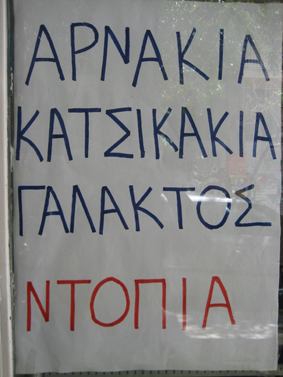 ΑΡΝΑΚΙΑ
ΚΑΤΣΙΚΑΚΙΑ
ΓΑΛΑΚΤΟΣ
ΝΤΟΠΙΑ